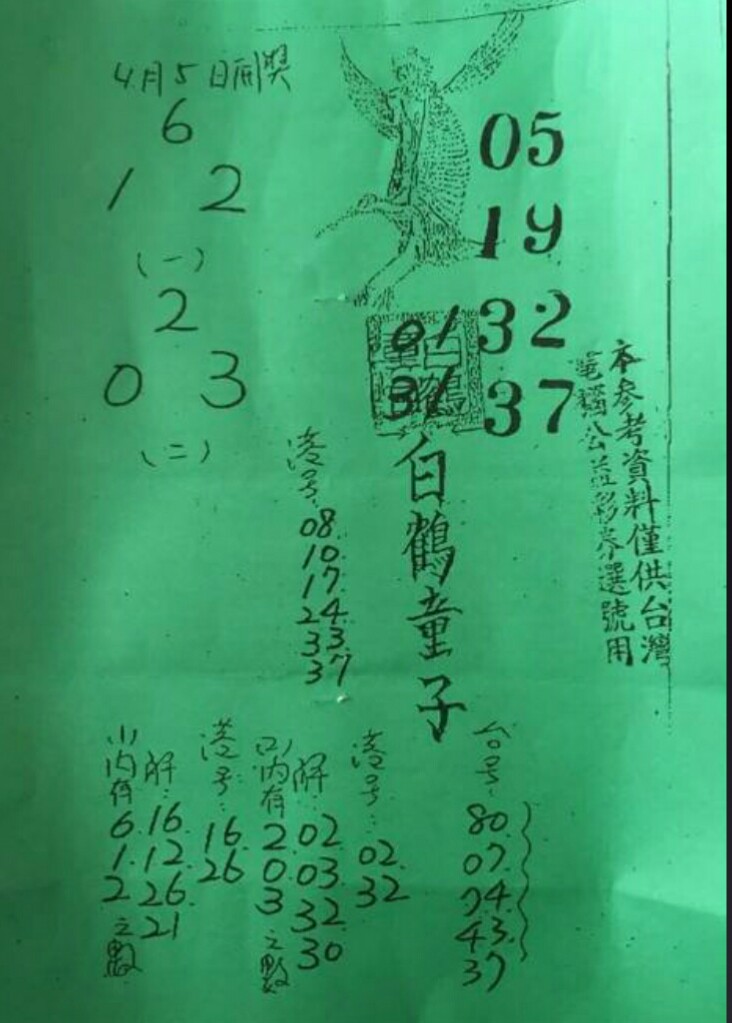 4月5日開獎
6
1 2
(一)
2
0 3
(二)
05
19
32
37
01
31
白鶴童子
本參考資料僅供台灣
電腦公益彩券選號用
港号:
08
10
17
24
33
37
台号:
80
07
74
43
37
港号:
02
32
解:
02
03
32
30
(二)内有
2
0
3
之數
港号:
16
26
解:
16
12
26
21
(一)内有
6
1
2
之數